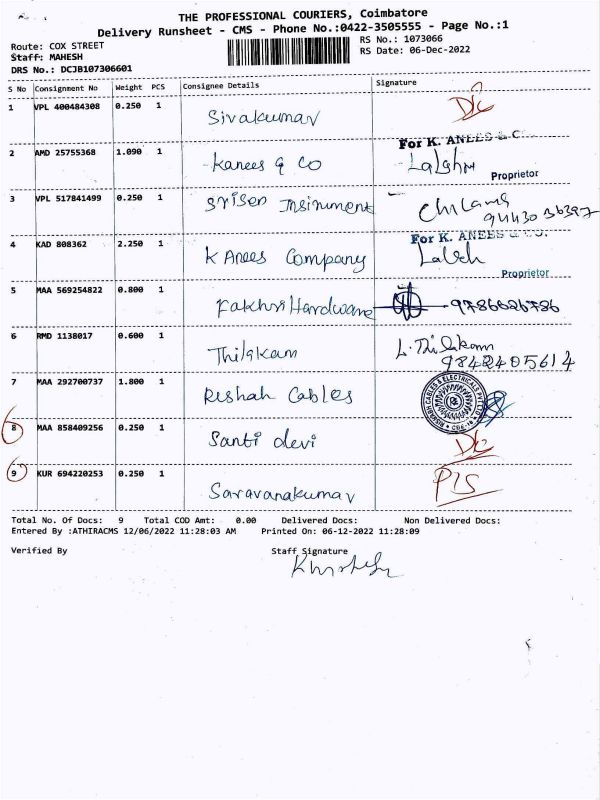 THE PROFESSIONAL COURIERS, Coimbatore
Delivery Runsheet - CMS - Phone No.:0422-3505555 - Page No.:1
Route: COX STREET
RS No.: 1073066
Staff: MAHESH
RS Date: 06-Dec-2022
DRS No.: DCJB107306601
S No Consignment No Weight PCS Consignee Details Signature
1 VPL 400484308 0.250 1 Sivakumar D/c
For K. ANEES & C
2 AMD 25755368 1.090 1 Kanees & Co
Proprietor
3 VPL 517841499 0.250 1 Srisen Insirument
94430 36397
For K. ANEES & CO.
4 KAD 808362 2.250 1 K Anees Company
Proprietor
5 MAA 569254822 0.800 1 Fakhri Hardware 9786626786
6 RMD 1138017 0.600 1 Thilakam L. Thilakam
9842405614
7 MAA 292700737 1.800 1 Rishah Cables
8 MAA 858409256 0.250 1 Santi devi D/c
9 KUR 694220253 0.250 1 Saravanakumar
Total No. Of Docs: 9 Total COD Amt: 0.00 Delivered Docs: Non Delivered Docs:
Entered By :ATHIRACMS 12/06/2022 11:28:03 AM Printed On: 06-12-2022 11:28:09
Verified By Staff Signature